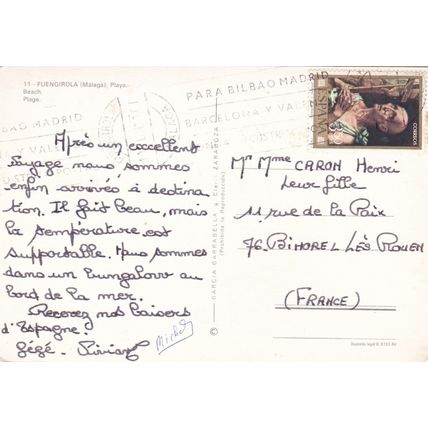 11 - FUENGIROLA (Málaga). Playa.
Beach.
Plage.
PARA BILBAO MADRID
BARCELONA Y VALEN
BAO MADRID
Y VALEN
Après un excellent
voyage nous sommes
enfin arrivés à destina
tion. Il fait beau, mais
la température est
supportable. Nous sommes
dans un bungalow au
bord de la mer.
Recevez nos baisers
d'Espagne.
Gégé.
Michel
GARCIA GARRABELLA y Cía. - ZARAGOZA
(Prohibida la Reproducción)
©
CORREOS
Mr Mme CARON Henri
Leur fille
11 rue de la Paix
76. BIHOREL LÈS ROUEN
(FRANCE)